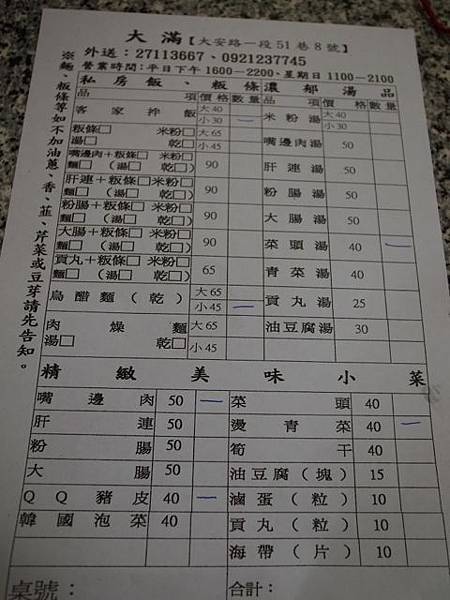 大 滿【大安路一段51巷8號】
外送：27113667、0921237745
營業時間：平日下午1600－2200、星期日1100－2100
※麵、粄條等如不加油蔥、香、韮、芹菜或豆芽請先告知。
私房飯、粄條 濃郁湯品
品 項 價格 數量 品 項 價格 數量
客家拌飯 大40 小30 一 米粉湯 大40 小30
粄條□ 米粉□ 湯□ 乾□ 大65 小45 嘴邊肉湯 50
嘴邊肉＋粄條□ 米粉□ 麵□（湯□ 乾□） 90 肝連湯 50
肝連＋粄條□ 米粉□ 麵□（湯□ 乾□） 90 粉腸湯 50
粉腸＋粄條□ 米粉□ 麵□（湯□ 乾□） 90 大腸湯 50
大腸＋粄條□ 米粉□ 麵□（湯□ 乾□） 90 菜頭湯 40 一
貢丸＋粄條□ 米粉□ 麵□（湯□ 乾□） 65 青菜湯 40
烏醋麵（乾） 大65 小45 一 貢丸湯 25
肉燥麵 湯□ 乾□ 大65 小45 油豆腐湯 30
精緻美味小菜
嘴邊肉 50 一 菜頭 40
肝連 50 燙青菜 40 一
粉腸 50 筍干 40
大腸 50 油豆腐（塊） 15
QQ豬皮 40 一 滷蛋（粒） 10
韓國泡菜 40 貢丸（粒） 10
海帶（片） 10
桌號： 合計：